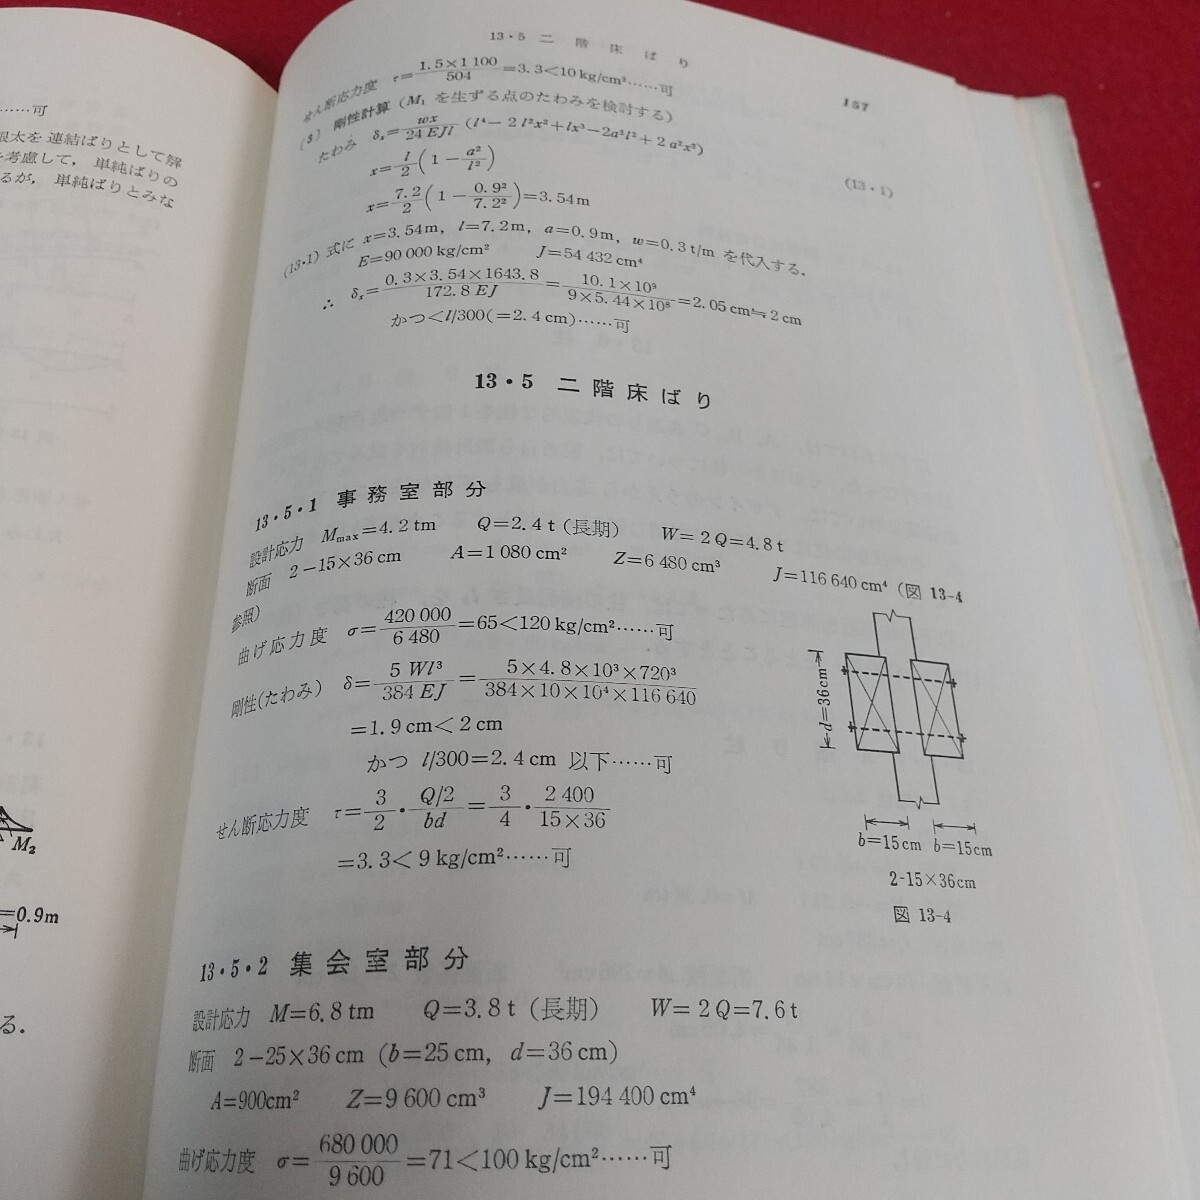 ……可
根太を連結ばりとして解
考慮して，単純ばりの
るが，単純ばりとみな
M₂
=0.9m
る．
13・5 二階床ばり
157
せん断応力度 τ=1.5×1 100/504=3.3<10 kg/cm²……可
(3) 剛性計算 (M₁ を生ずる点のたわみを検討する)
たわみ δₓ=wx/24 EJl (l⁴−2 l²x²+lx³−2a²l²+2 a²x²) (13・1)
x=l/2(1−a²/l²)
x=7.2/2(1−0.9²/7.2²)=3.54m
(13・1) 式に x=3.54m, l=7.2m, a=0.9m, w=0.3 t/m を代入する．
E=90 000 kg/cm² J=54 432 cm⁴
∴ δₓ=0.3×3.54×1643.8/172.8 EJ=10.1×10⁹/9×5.44×10⁸=2.05 cm≒2 cm
かつ<l/300(=2.4 cm)……可
13・5 二階床ばり
13・5・1 事務室部分
設計応力 Mmax=4.2 tm Q=2.4 t (長期) W=2 Q=4.8 t
断面 2−15×36 cm A=1 080 cm² Z=6 480 cm³ J=116 640 cm⁴ (図 13-4
参照)
曲げ応力度 σ=420 000/6 480=65<120 kg/cm²……可
剛性(たわみ) δ=5 Wl³/384 EJ=5×4.8×10³×720³/384×10×10⁴×116 640
=1.9 cm<2 cm
かつ l/300=2.4 cm 以下……可
せん断応力度 τ=3/2・Q/2/bd=3/4・2 400/15×36
=3.3<9 kg/cm²……可
d=36cm
b=15cm b=15cm
2-15×36cm
図 13-4
13・5・2 集会室部分
設計応力 M=6.8 tm Q=3.8 t (長期) W=2 Q=7.6 t
断面 2−25×36 cm (b=25 cm, d=36 cm)
A=900cm² Z=9 600 cm³ J=194 400 cm⁴
曲げ応力度 σ=680 000/9 600=71<100 kg/cm²……可